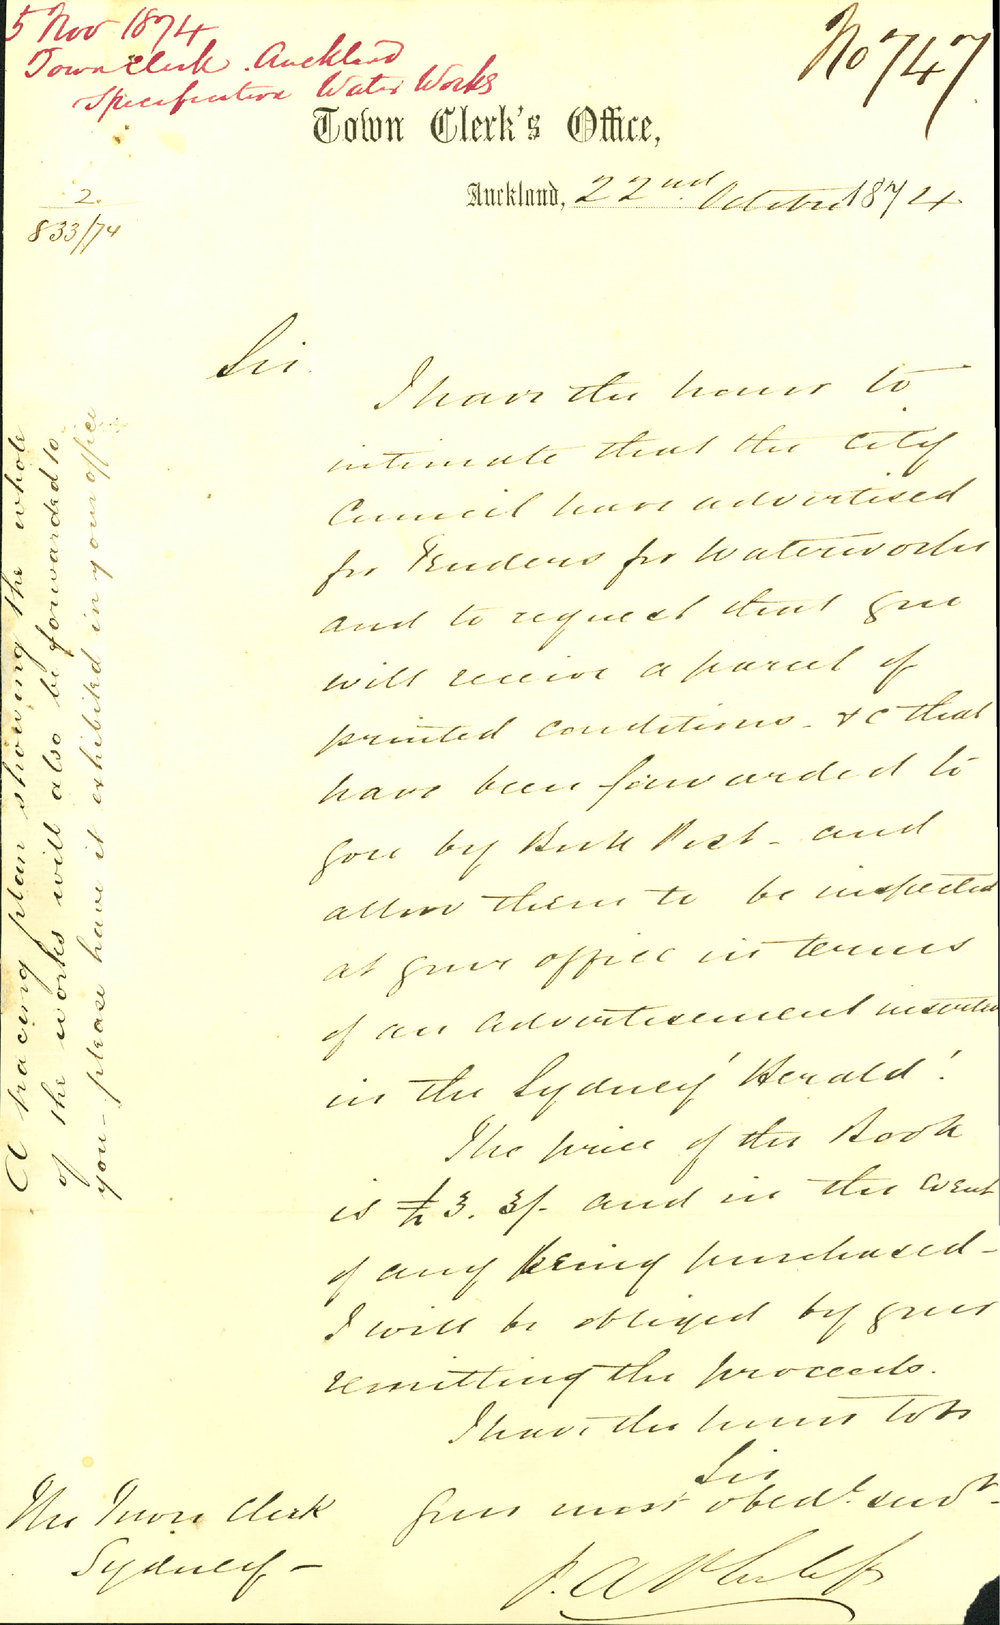 5 Nov 1874
Town Clerk. Auckland
Specification Water Works
No 747
Town Clerk's Office,
Auckland, 22nd. October 1874.
2.
833/74
Sir.
I have the honor to
intimate that the City
Council have advertised
for Tenders for Waterworks
and to request that you
will receive a parcel of
printed conditions - &c that
have been forwarded to
you by Book Post - and
allow them to be inspected
at your office in terms
of an advertisement inserted
in the Sydney 'Herald'.
The price of the Book
is £3. 3/- and in the event
of any being purchased -
I will be obliged by your
remitting the proceeds.
I have the honor to be
Sir
Your most obedt. servt.
P. A. Philips
The Town Clerk
Sydney -
A tracing plan showing the whole
of the works will also be forwarded to
you - please have it exhibited in your office